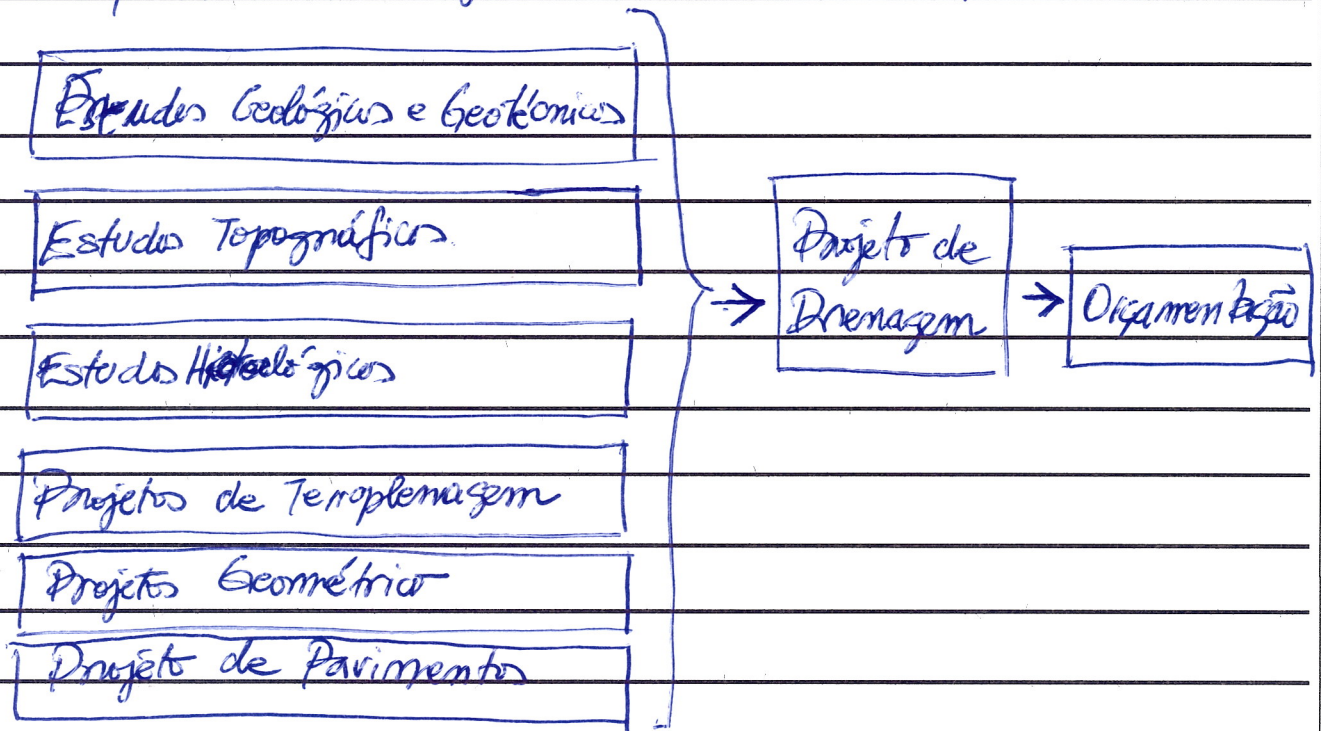 Estudos Geológicos e Geotécnicos
Estudos Topográficos
Estudos Hidrológicos
Projetos de Terraplenagem
Projetos Geométrico
Projeto de Pavimentos
Projeto de
Drenagem
Orçamentação